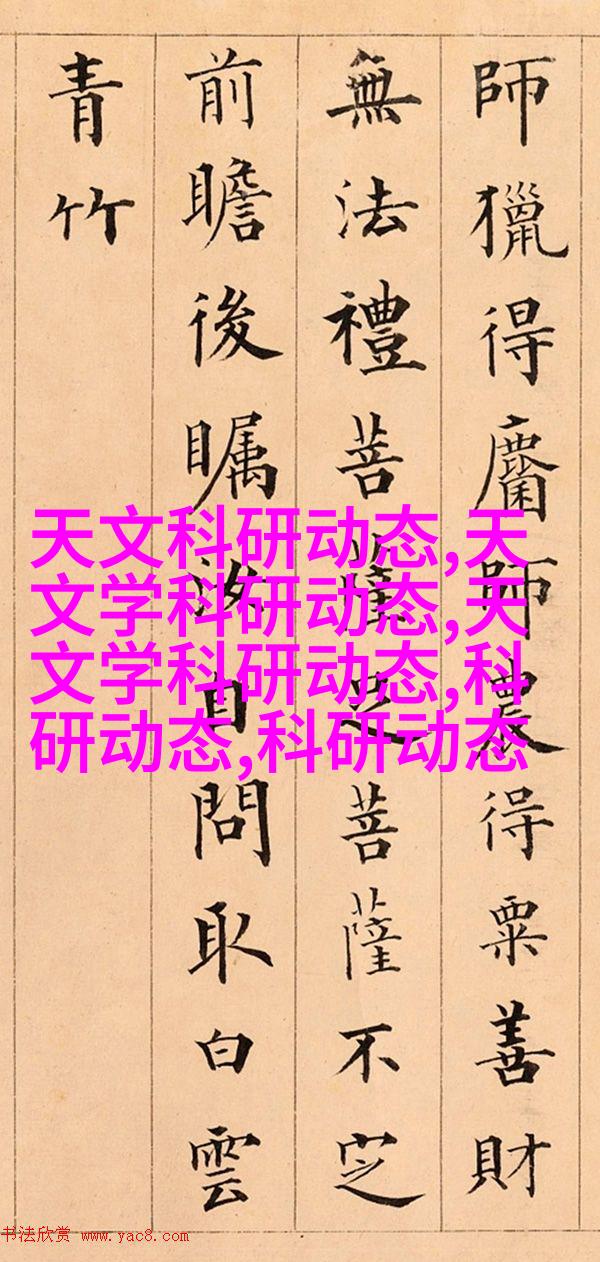 師獵得麕師農得粟善財
無法禮菩薩定菩薩不定
前瞻後矚汝自問取白雲
青竹
天文科研动态,天
文学科研动态,天
文学科研动态,科
研动态,科研动态
书法欣赏 www.yac8.com